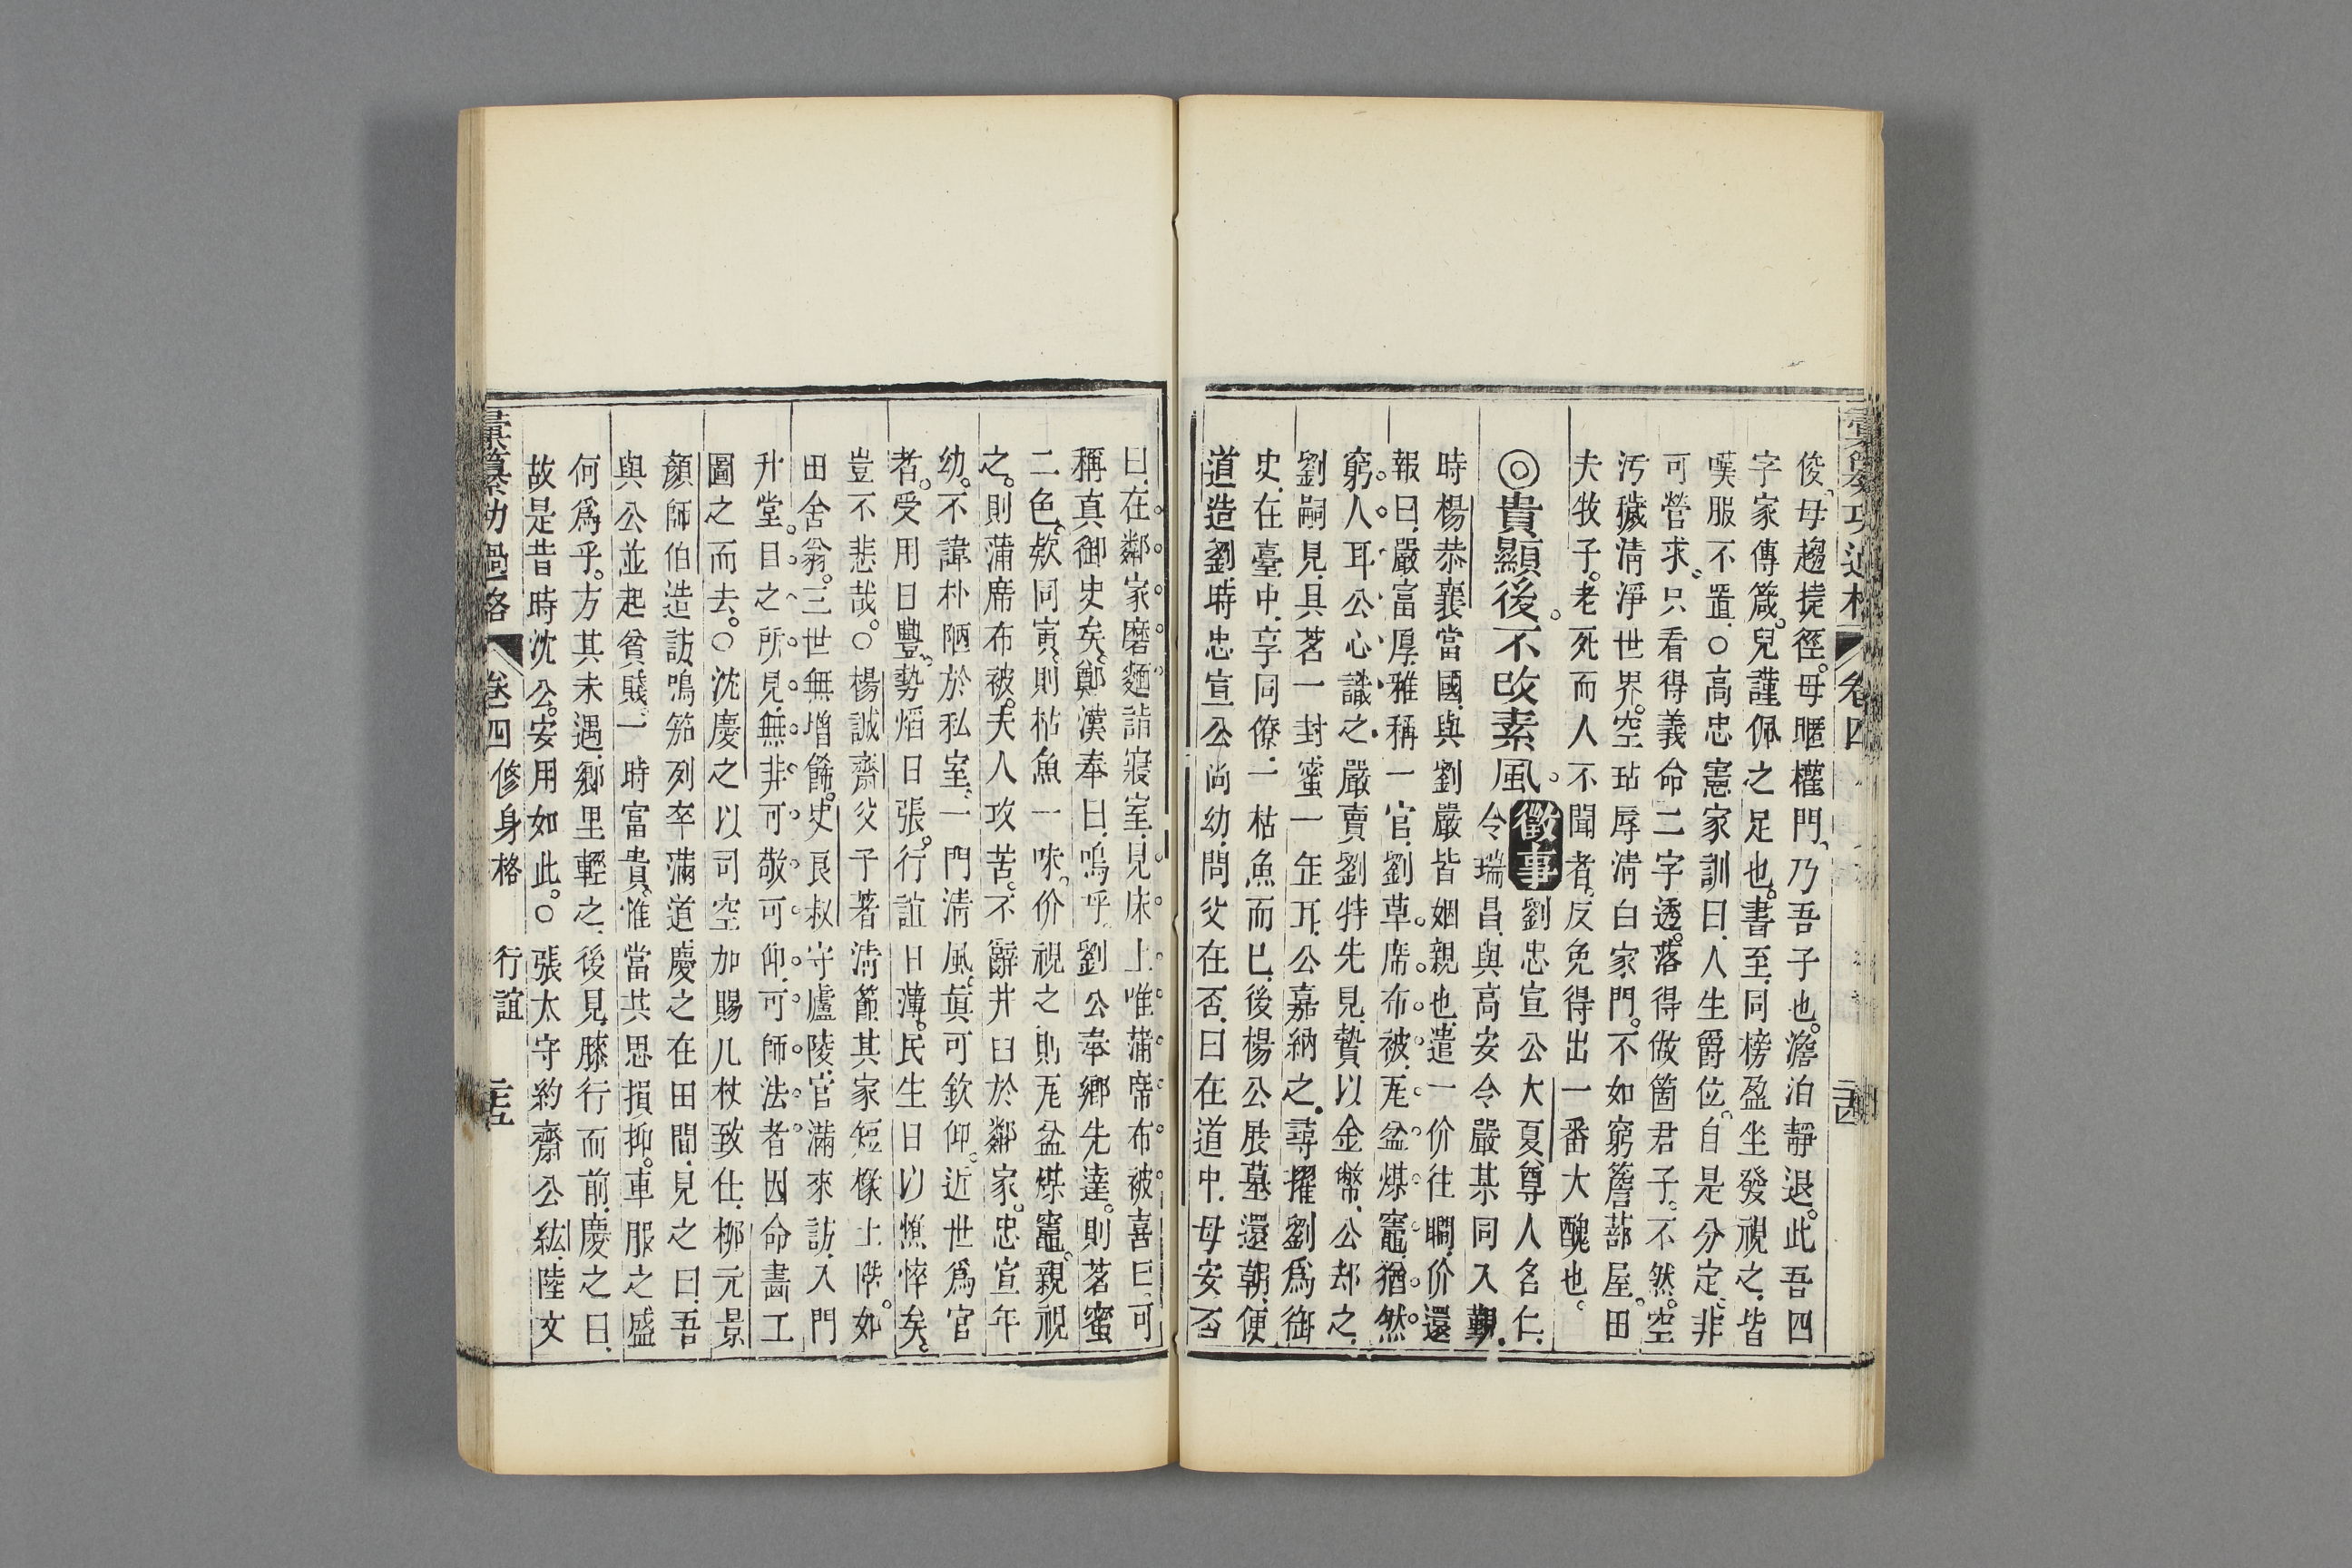 俊母趨捷徑母暱權門乃吾子也澹泊靜退此吾四
字家傳箴兒謹佩之足也書至同榜盈坐發視之皆
嘆服不置○高忠憲家訓曰人生爵位自是分定非
可營求只看得義命二字透落得做箇君子不然空
汚穢淸淨世界空玷辱淸白家門不如窮簷蔀屋田
夫牧子老死而人不聞者反免得出一番大醜也
◎貴顯後不改素風 徵事 劉忠宣公大夏尊人名仁
令瑞昌與高安令嚴某同入覲
時楊恭襄當國與劉嚴皆姻親也遣一价往瞷价還
報曰嚴富厚雅稱一官劉草席布被瓦盆煤竈猶然
窮人耳公心識之嚴賣劉特先見贄以金幣公却之
劉嗣見具茗一封蜜一缶耳公嘉納之尋擢劉爲御
史在臺中享同僚一枯魚而已後楊公展墓還朝便
道造劉時忠宣公尚幼問父在否曰在道中母安否
曰在鄰家磨麵詣寢室見床上唯蒲席布被喜曰可
稱真御史矣鄭漢奉曰嗚乎劉公奉鄉先達則茗蜜
二色欸同寅則枯魚一味价視之則瓦盆煤竈親視
之則蒲席布被夫人攻苦不辭井臼於鄰家忠宣年
幼不諱朴陋於私室一門淸風眞可欽仰近世爲官
者受用日豐勢焰日張行誼日薄民生日以憔悴矣
豈不悲哉○楊誠齋父子著淸節其家短椽土階如
田舍翁三世無增餙史良叔守廬陵官滿來訪入門
升堂目之所見無非可敬可仰可師法者因命畫工
圖之而去○沈慶之以司空加賜几杖致仕柳元景
顏師伯造訪鳴笳列卒滿道慶之在田間見之曰吾
與公並起貧賤一時富貴惟當共思損抑車服之盛
何爲乎方其未遇鄉里輕之後見膝行而前慶之曰
故是昔時沈公安用如此○張太守約齋公紘陸文
彙纂功過格 卷四 修身格 行誼 二十五